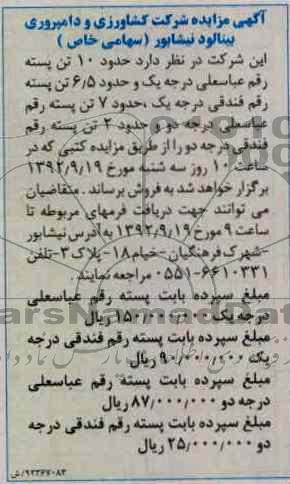 آگهی مزایده شرکت کشاورزی و دامپروری
بینالود نیشابور (سهامی خاص)
این شرکت در نظر دارد حدود ۱۰ تن پسته
رقم عباسعلی درجه یک و حدود ۶/۵ تن پسته
رقم فندقی درجه یک ،حدود ۷ تن پسته رقم
عباسعلی درجه دو و حدود ۲ تن پسته رقم
فندقی درجه دو را از طریق مزایده کتبی که در
ساعت ۱۰ روز سه شنبه مورخ ۱۳۹۲/۹/۱۹
برگزار خواهد شد به فروش برساند . متقاضیان
می توانند جهت دریافت فرمهای مربوطه تا
ساعت ۹ مورخ ۱۳۹۲/۹/۱۹ به آدرس نیشابور
-شهرک فرهنگیان-خیام ۱۸-پلاک ۳-تلفن
۰۵۵۱-۶۶۱۰۳۳۱ مراجعه نمایند .
مبلغ سپرده بابت پسته رقم عباسعلی
درجه یک ۱۵۰/۰۰۰/۰۰۰ ریال
مبلغ سپرده بابت پسته رقم فندقی درجه
یک ۹۰/۰۰۰/۰۰۰ ریال
مبلغ سپرده بابت پسته رقم عباسعلی
درجه دو ۸۷/۰۰۰/۰۰۰ ریال
مبلغ سپرده بابت پسته رقم فندقی درجه
دو ۲۵/۰۰۰/۰۰۰ ریال
۹۲۳۶۷۰۸۳/ش